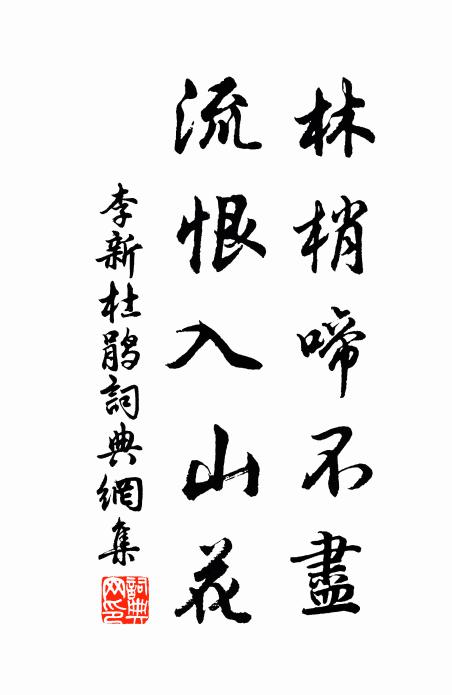 林梢啼不盡
流恨入山花
李新杜鹃詞典網集
詞典網印